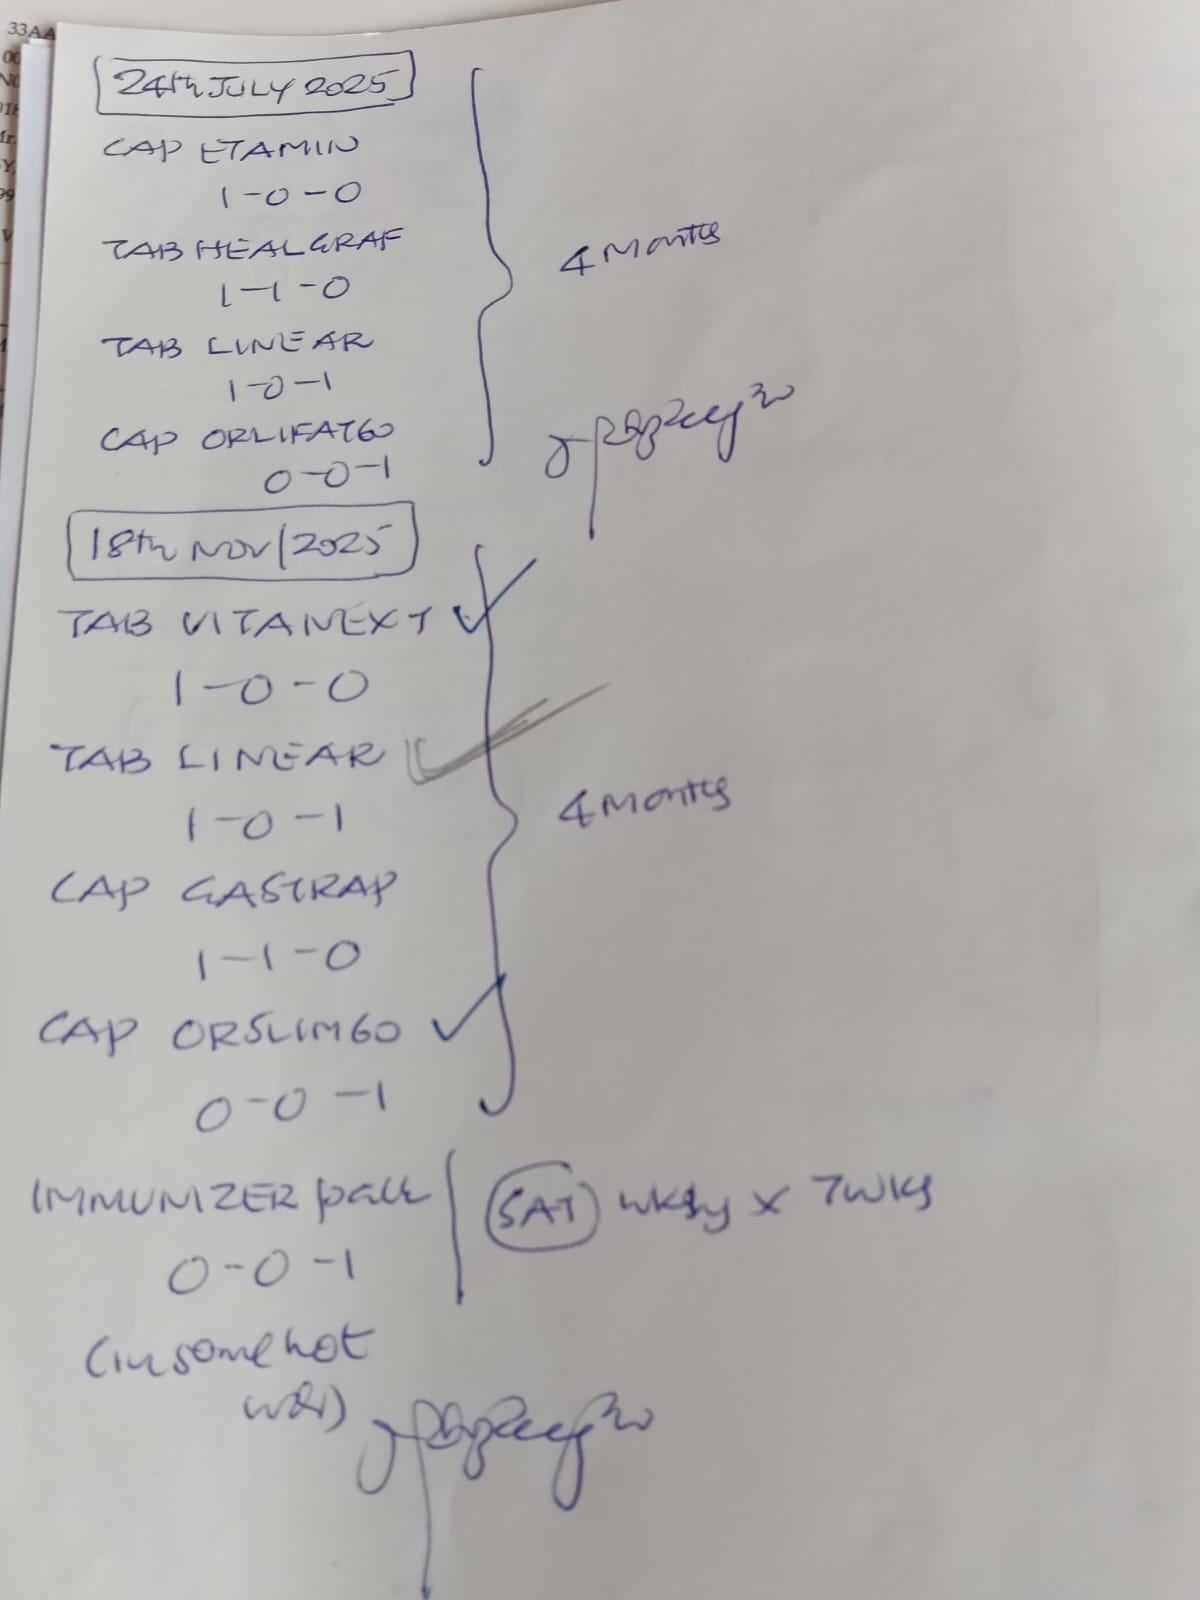 33AA
24th JULY 2025
CAP ETAMIN
1-0-0
TAB HEALGRAF
1-1-0
4 Months
TAB LINEAR
1-0-1
CAP ORLIFAT60
0-0-1
18th NOV/2025
TAB VITANEXT
1-0-0
TAB LINEAR
1-0-1
4 Months
CAP GASTRAP
1-1-0
CAP ORSLIM60
0-0-1
IMMUNIZER pack SAT wkly x 7wks
0-0-1
(in some hot